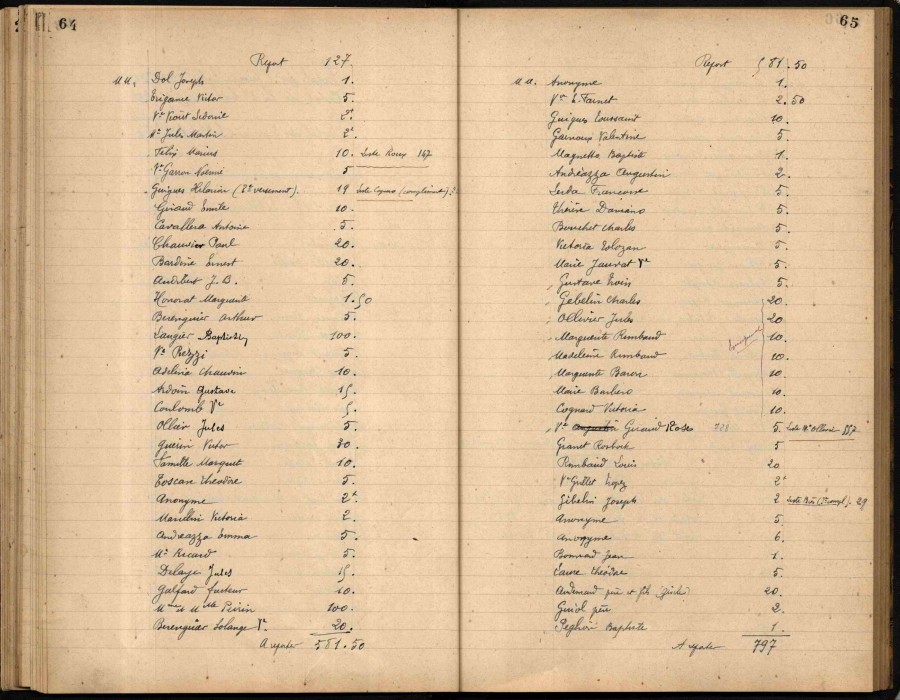 64
Report 127.
MM. Dol Joseph 1.
Victor 5.
Vve 2.
Mr Jules Martin 2.
Felix Marius 10. Liste Roux 167
Vve Garron 5
Guigues Hilarion (2e versement). 19 Liste (complément)
Giraud Emile 10.
Cavallera Antoine 5.
Chauvier Paul 20.
Bardine Ernest 20.
Audibert J. B. 5.
Honorat Marguerite 1.50
Berenguier Arthur 5.
Laugier Baptistin 100.
Vve Rezzi 5.
Adelina Chauvin 10.
Ardoin Gustave 15.
Coulomb Vve 5.
Ollier Jules 5.
Guérin Victor 30.
Famille Marquet 10.
Toscan Théodore 5.
Anonyme 2.
Mancilini Victoria 2.
Andreazza Emma 5.
Mr Ricard 5.
Delaye Jules 15.
facteur 10.
Mme et Mlle 100.
Berenguier Solange Vve 20.
A reporter 581.50
65
Report 581.50
MM. Anonyme 1.
Vve L. 2.50
Guigues Toussaint 10.
Garnoux Valentine 5.
Magnetto Baptiste 1.
Andreazza Augustin 2.
Françoise 5.
Thérèse Damiano 5.
Bouchet Charles 5.
Victoria 5.
Marie Jauvat Vve 5.
Gustave 5.
Gebelin Charles 20.
Ollivier Jules 20
Marguerite Rimbaud 10.
Madeleine Rimbaud 10.
Marguerite Baron 10.
Marie Barbero 10.
Cognard Victoria 10.
Vve Giraud Rose 5. Liste Mr Ollivier 557
Granet 5
Rimbaud Louis 20
Vve 2
Gibelin Joseph 2 29
Anonyme 5.
Anonyme 6.
Bonnaud Jean 1.
Théodore 5.
père et fils 20.
Guiol père 2.
Baptiste 1.
A reporter 797